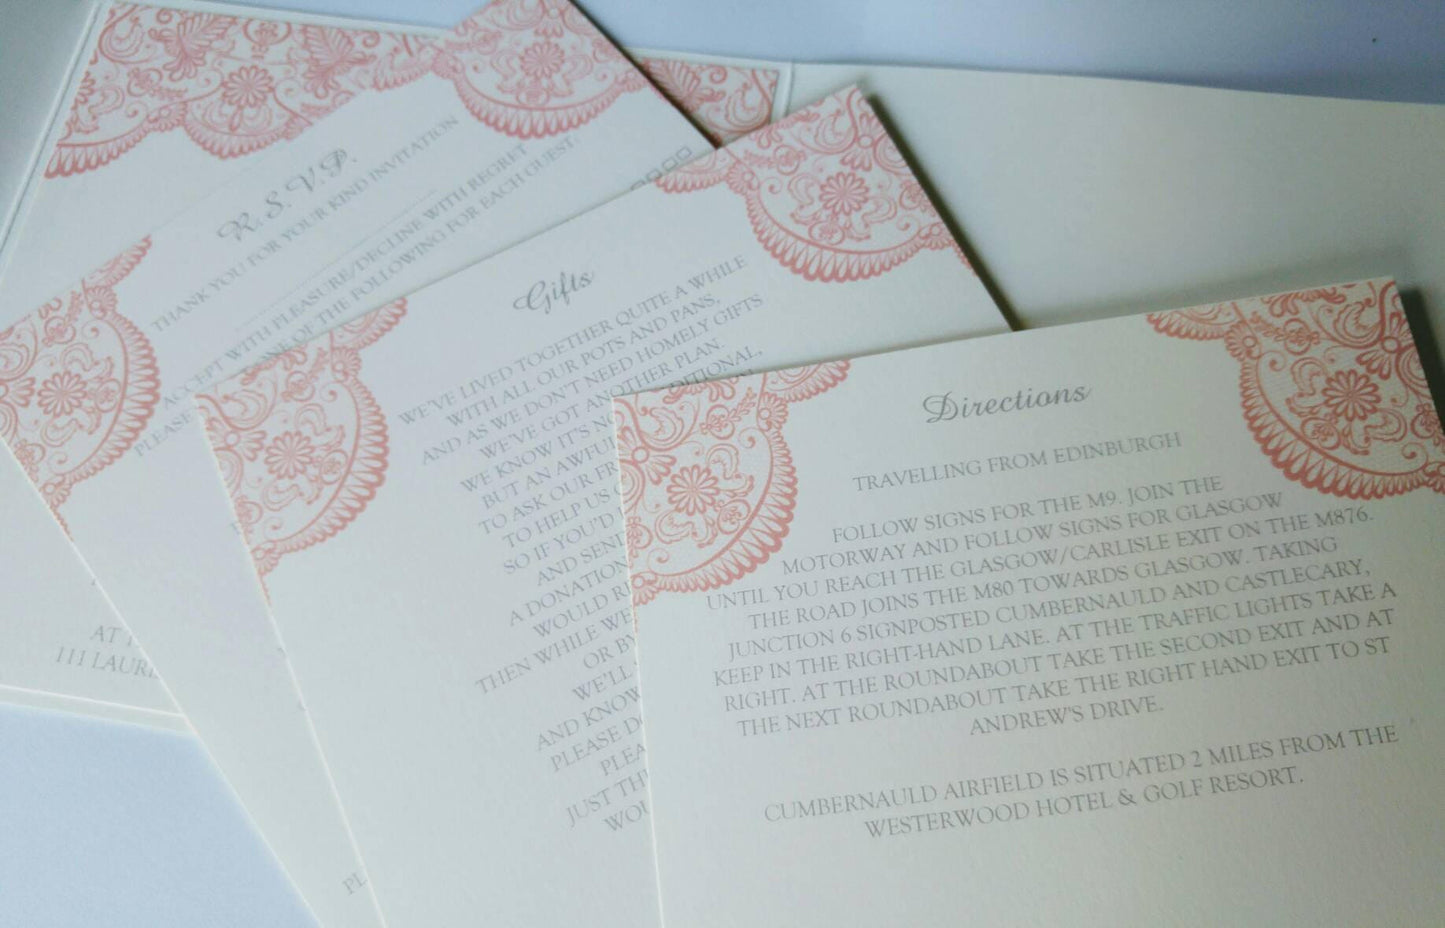 R.S.V.P.
THANK YOU FOR YOUR KIND INVITATION
ACCEPT WITH PLEASURE/DECLINE WITH REGRET
PLEASE ONE OF THE FOLLOWING FOR EACH GUEST:
AT
111 LAUR
Gifts
WE'VE LIVED TOGETHER QUITE A WHILE
WITH ALL OUR POTS AND PANS,
AND AS WE DON'T NEED HOMELY GIFTS
WE'VE GOT ANOTHER PLAN.
WE KNOW IT'S NO DITIONAL,
BUT AN AWFUL
TO ASK OUR FR
TO HELP US
SO IF YOU'D
AND SEND
A DONATION
WOULD R
THEN WHILE WE
OR BY
WE'LL
AND KNOW
PLEASE DO
PLEA
JUST TH
WOU
PL
Directions
TRAVELLING FROM EDINBURGH
FOLLOW SIGNS FOR THE M9. JOIN THE
MOTORWAY AND FOLLOW SIGNS FOR GLASGOW
UNTIL YOU REACH THE GLASGOW/CARLISLE EXIT ON THE M876.
THE ROAD JOINS THE M80 TOWARDS GLASGOW. TAKING
JUNCTION 6 SIGNPOSTED CUMBERNAULD AND CASTLECARY,
KEEP IN THE RIGHT-HAND LANE. AT THE TRAFFIC LIGHTS TAKE A
RIGHT. AT THE ROUNDABOUT TAKE THE SECOND EXIT AND AT
THE NEXT ROUNDABOUT TAKE THE RIGHT HAND EXIT TO ST
ANDREW'S DRIVE.
CUMBERNAULD AIRFIELD IS SITUATED 2 MILES FROM THE
WESTERWOOD HOTEL & GOLF RESORT.